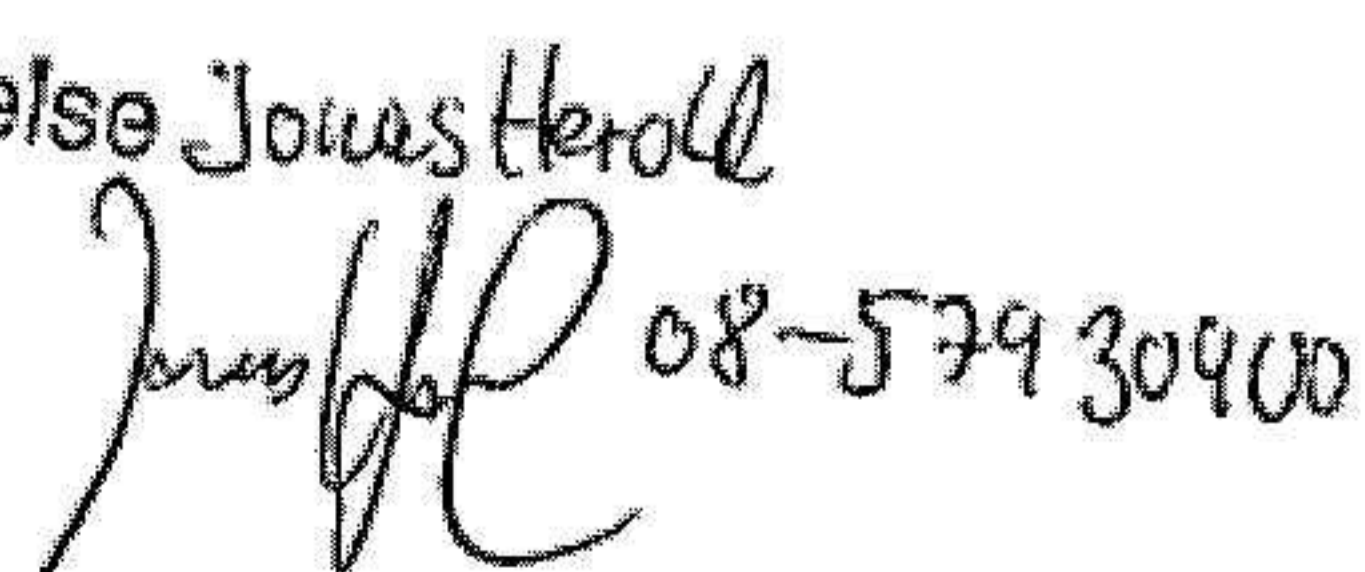 else Jonas Herold
Jonas 08-579 30900